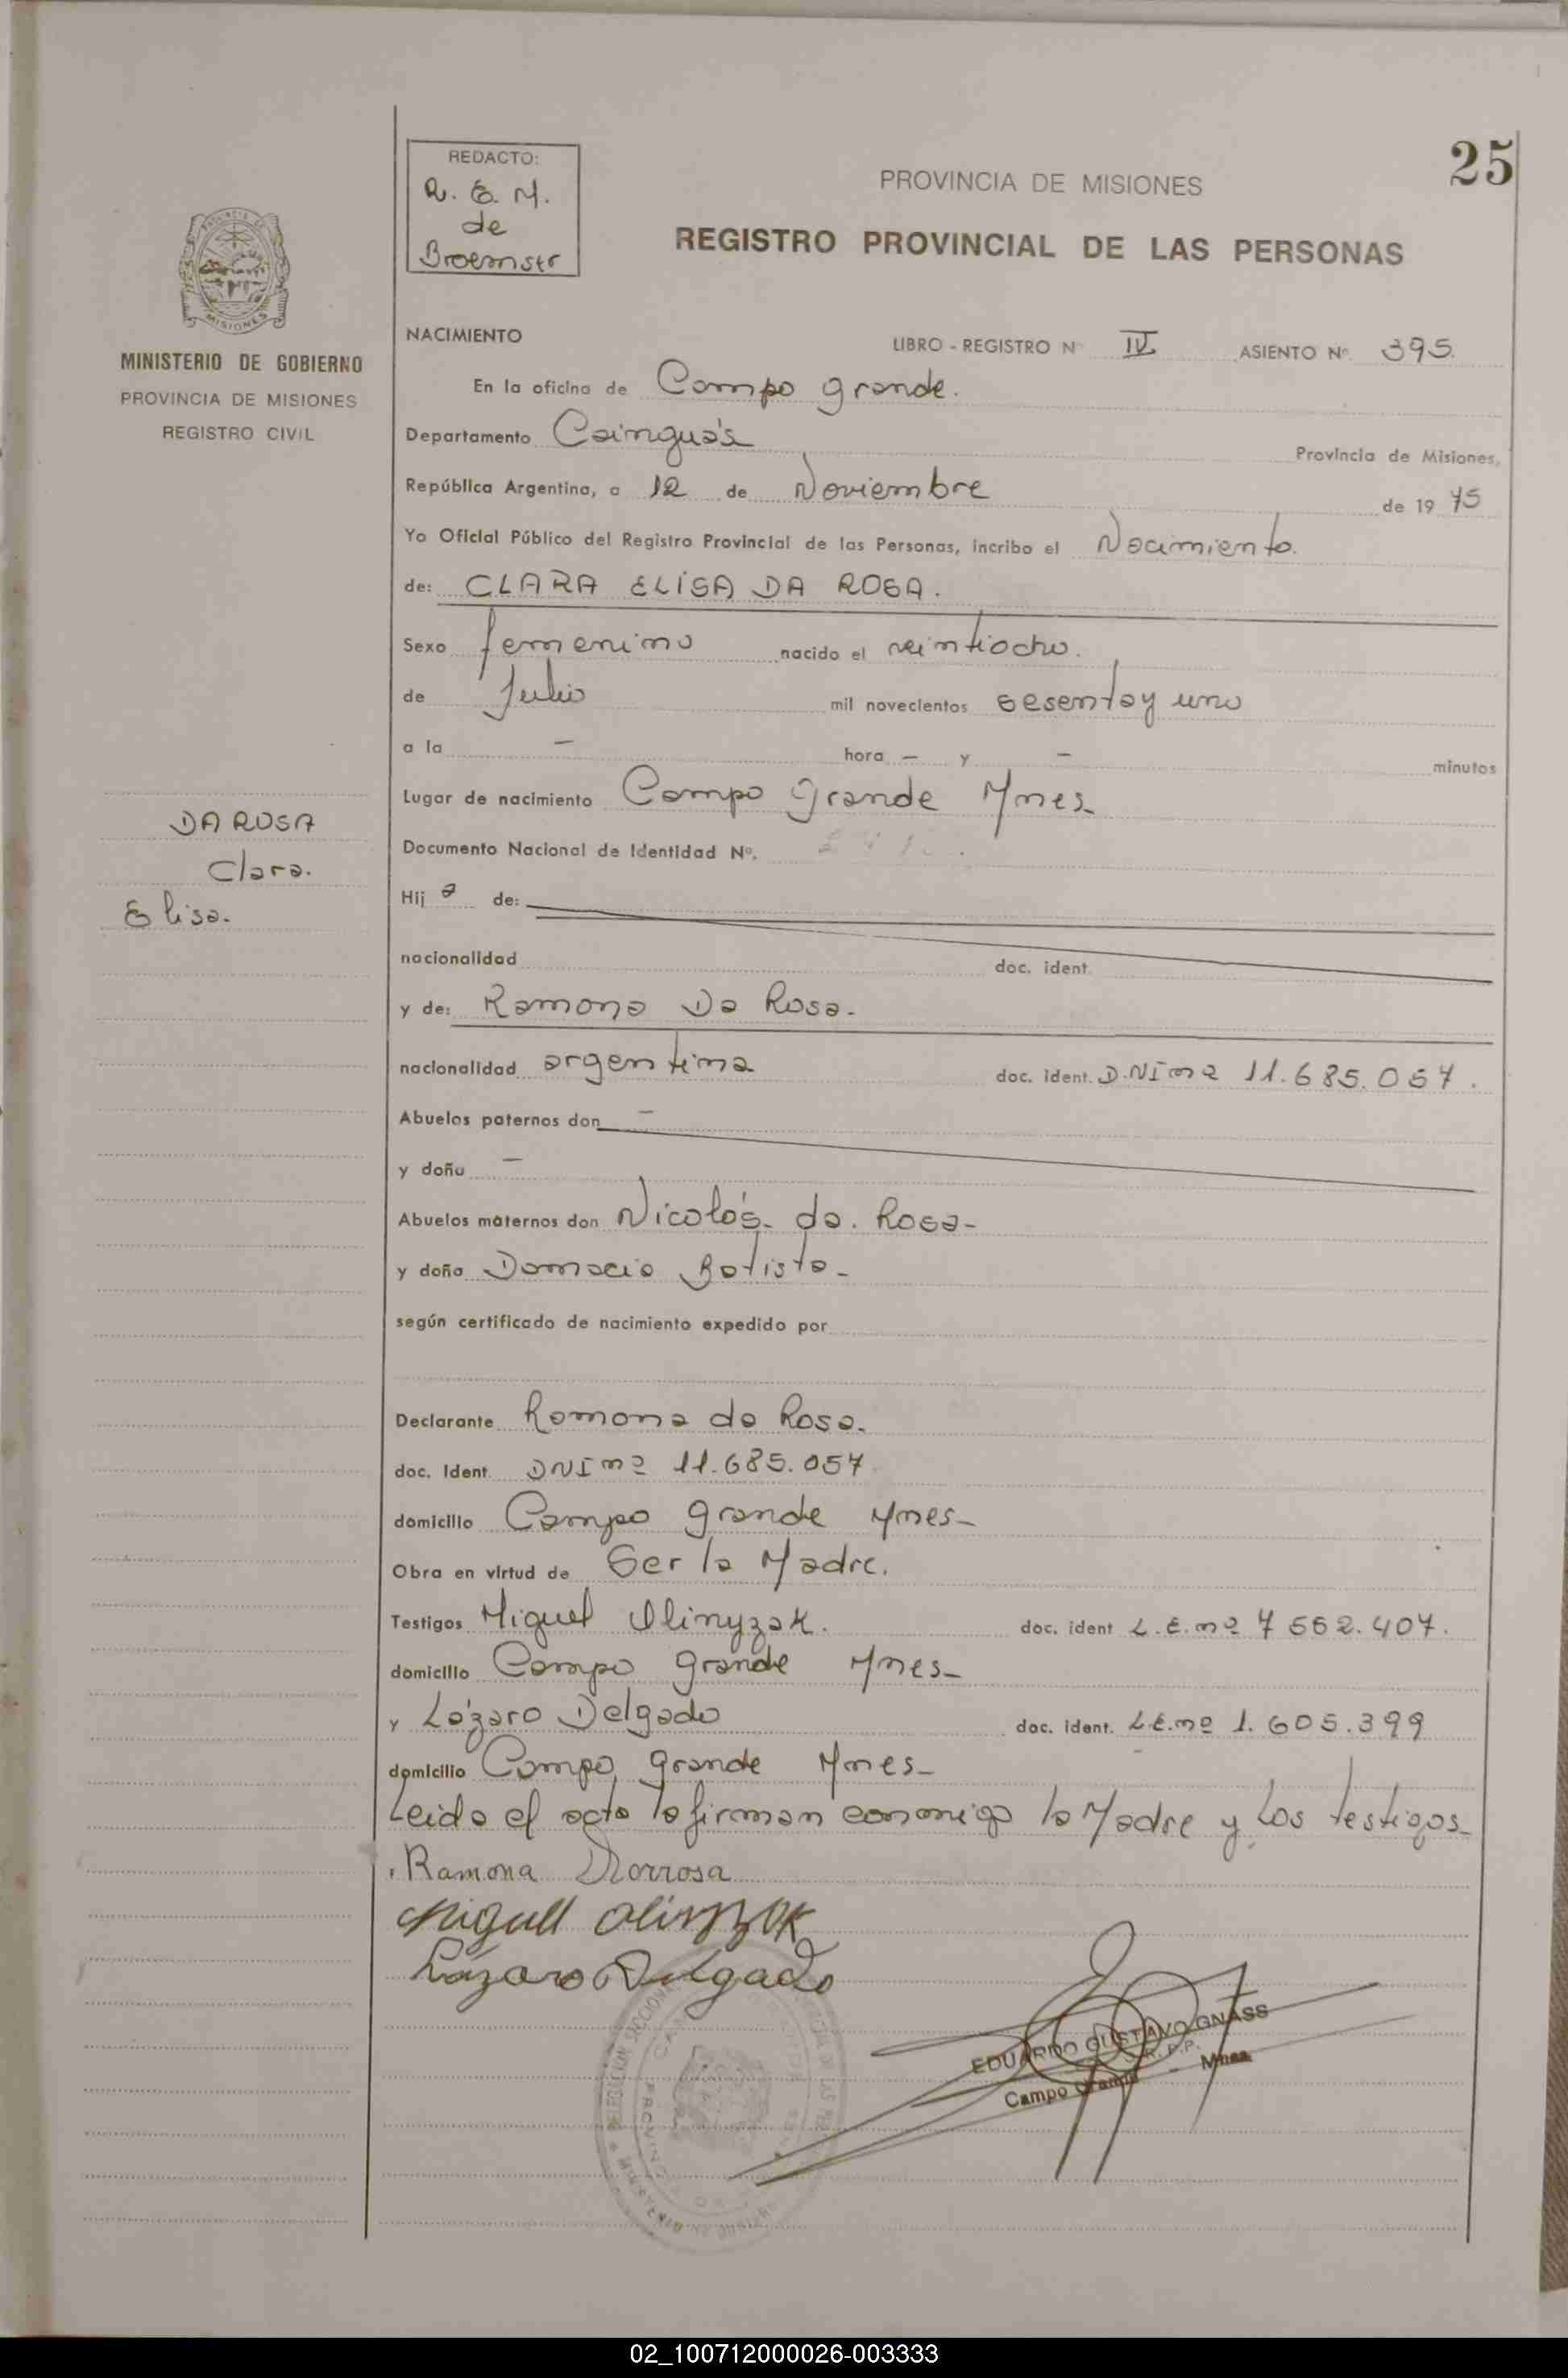 25
REDACTO:
R. E. M.
de
Broemser
PROVINCIA DE MISIONES
REGISTRO PROVINCIAL DE LAS PERSONAS
MISIONES
MINISTERIO DE GOBIERNO
PROVINCIA DE MISIONES
REGISTRO CIVIL
NACIMIENTO LIBRO - REGISTRO N° IV ASIENTO Nº 395.
En la oficina de Campo grande.
Departamento Cainguás Provincia de Misiones,
República Argentina, a 12 de Noviembre de 19 75
Yo Oficial Público del Registro Provincial de las Personas, incribo el Nacimiento.
de: CLARA ELISA DA ROSA.
Sexo femenino nacido el veintiocho.
de Julio mil novecientos sesentay uno
a la – hora – y – minutos
Lugar de nacimiento Campo Grande Mnes
Documento Nacional de Identidad Nº.
DA ROSA
Clara.
Elisa.
Hij a de:
nacionalidad doc. ident.
y de: Ramona Da Rosa.
nacionalidad argentina doc. ident. D.NI nº 11.685.057.
Abuelos paternos don –
y doña –
Abuelos maternos don Nicolás da. Rosa-
y doña Damacia Batista-
según certificado de nacimiento expedido por
Declarante Ramona da Rosa.
doc. Ident. DNI nº 11.685.057
domicilio Campo grande Mnes-
Obra en virtud de Ser la Madre.
Testigos Miguel Olinyzak. doc. ident L.E. nº 7 552.407.
domicilio Campo grande Mnes-
y Lázaro Delgado doc. ident. L.E. nº 1.605.399
domicilio Campo grande Mnes-
Leida el acta la firman conmigo la Madre y los testigos-
Ramona Dorrosa
Miguel Olinyzak
Lázaro Delgado
EDUARDO GUSTAVO GNASS
Campo Grande - Mnes
02_100712000026-003333